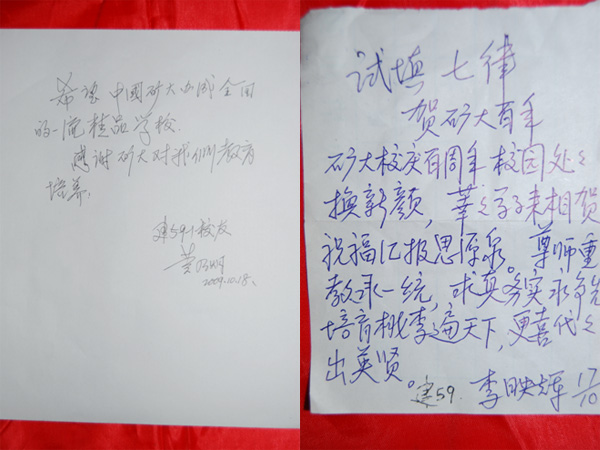 希望中国矿大办成全国
的一流精品学校.
感谢矿大对我们教育
培养,
建59-1校友
2009.10.18、
试填七律
贺矿大百年
矿大校庆百周年校园处々
换新颜，莘々学子来相贺
祝福汇报思源泉。尊师重
教承一统，求真务实永争先
培育桃李遍天下，更喜代々
出英贤。
建59. 李映辉 17/10